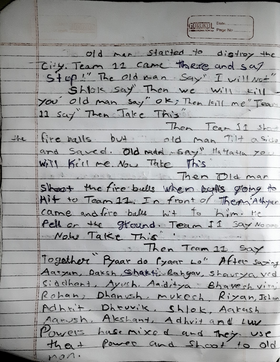 Date
Page No.
old man started to distroy the
City. Team 11 came there and say
Stop!" The old man Say" I will Not"
Shlok say" Then we will kill
you" old man say" ok, Then kill me" Team
11 say" Then Take This"
Then Team 11
the fire balls but old man tilt a side
and Saved. Old man say" Hahaha you
Will kill me. Now Take This
Then Old man
Shoot the fire balls when balls going to
Hit to Team 11. In front of them
came and fire balls hit to him. He
Fell on the ground. Team 11 Say No
Now Take This"
Then Team 11 Say
Together" Pyaar do Pyaar Lo" After saying
Aaryan, Daksh, Shakti, Raghav, Shaurya, ved
Siddhant, Ayush, Aaditya, Bhavesh,
Rohan, Dhanush, mukesh, Riyan,
Adhvit, Dhruvik, Shlok, Aakash
Aarush, Akshant, Adhvit and Luv
Powers have mixed and They use
that power and Shoot to old
man.